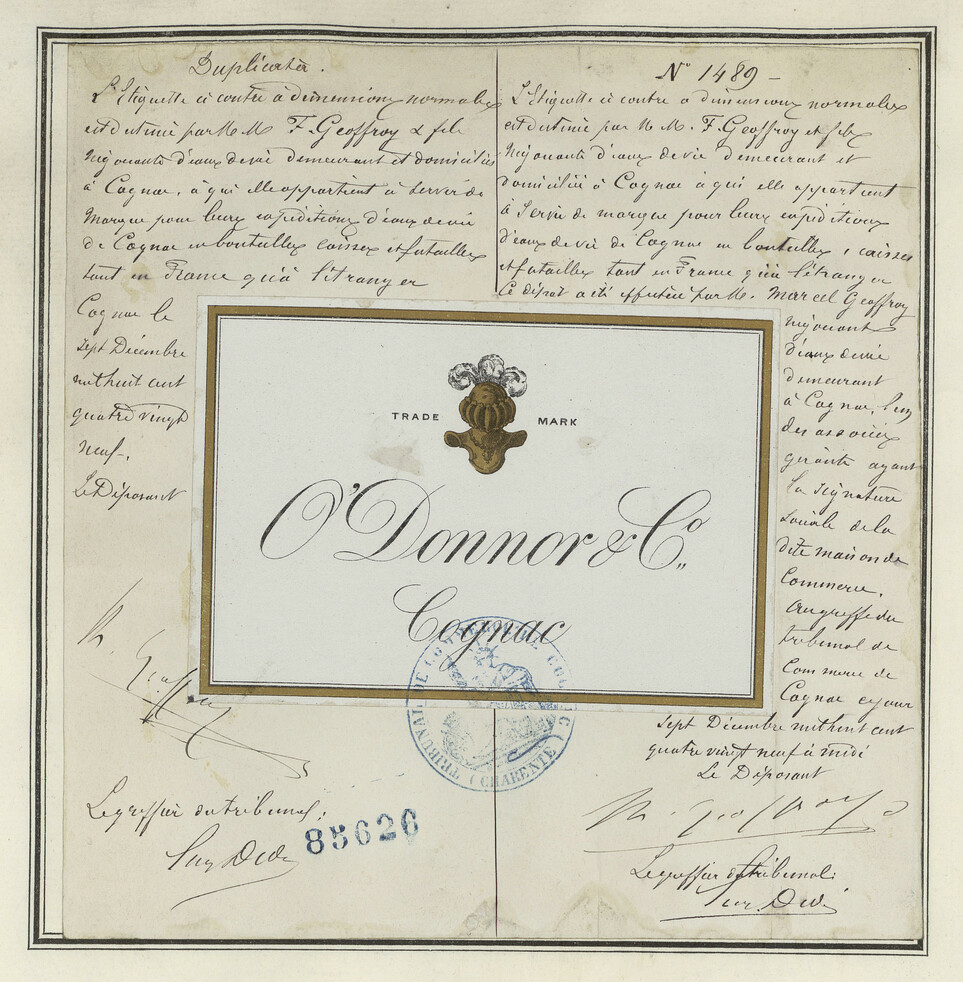 Duplicata.
L'Etiquette ci contre à dimensions normales
est destinée par M.M. F. Geoffroy & fils
Négociants d'eaux de vie demeurant et domiciliés
à Cognac, à qui elle appartient à servir de
Marque pour leurs expéditions d'eaux de vie
de Cognac en bouteilles caisses et futailles
tant en France qu'à l'étranger
Cognac le
sept Décembre
mil huit cent
quatre vingt
neuf.
Le Déposant
M. Geoffroy
Le greffier du tribunal:
85626
N° 1489 -
L'Etiquette ci contre à dimensions normales
est destinée par M.M. F. Geoffroy et fils
Négociants d'eaux de vie demeurant et
domiciliés à Cognac à qui elle appartient
à Servir de marque pour leurs expéditions
d'eaux de vie de Cognac en bouteilles, caisses
et futailles tant en France qu'à l'étranger
Ce dépôt a été effectué par M. Marcel Geoffroy
négociant
d'eaux de vie
demeurant
à Cognac, l'un
des associés
gérants ayant
la signature
sociale de la
dite maison de
Commerce.
Au greffe du
tribunal de
Commerce de
Cognac ce jour
sept Décembre mil huit cent
quatre vingt neuf à midi
Le Déposant
M. Geoffroy
Le greffier du tribunal:
TRADE MARK
O'Donnor & Co.
Cognac
TRIBUNAL DE COMMERCE DE COGNAC (CHARENTE)